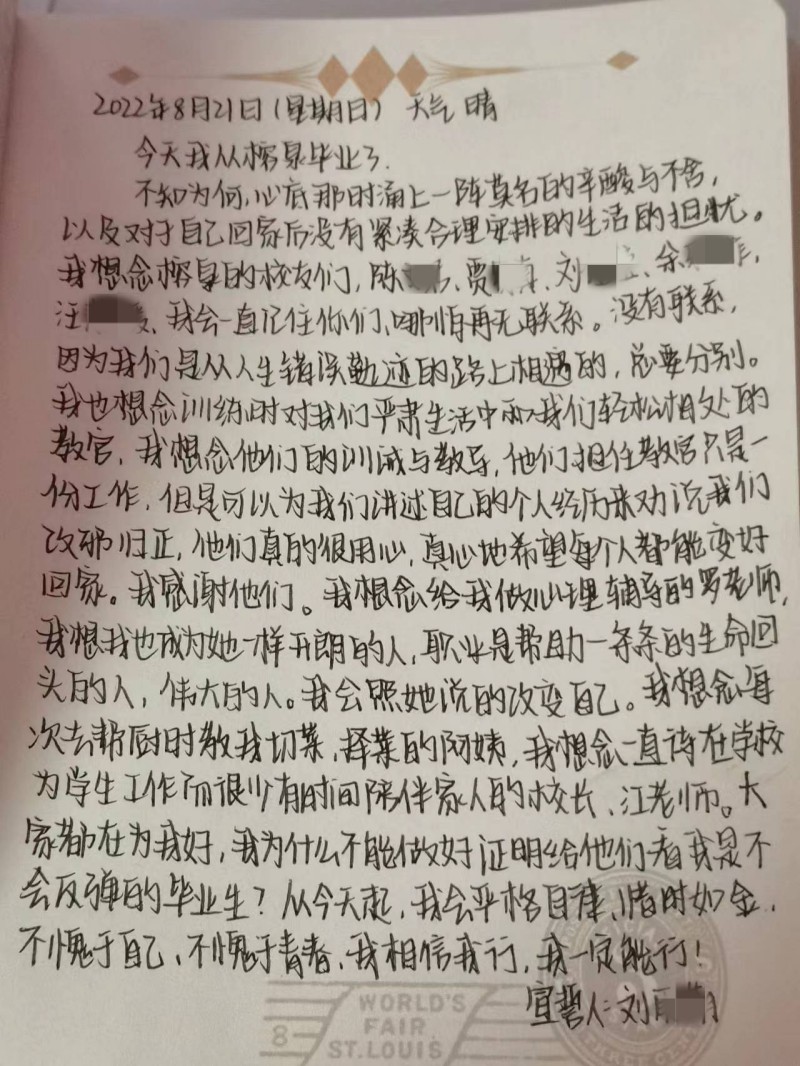 2022年8月21日（星期日） 天气 晴
今天我从榕泉毕业了.
不知为何,心底那时涌上一阵莫名的辛酸与不舍,
以及对于自己回家后没有紧凑合理安排的生活的担忧。
我想念榕泉的校友们, 陈 贾 、刘 、余 ,
汪 、我会一直记住你们、哪怕再无联系。没有联系,
因为我们是从人生错误轨迹的路上相遇的, 总要分别。
我也想念训练时对我们严肃生活中和我们轻松相处的
教官, 我想念他们的训诫与教导, 他们担任教官只是一
份工作, 但是可以为我们讲述自己的个人经历来劝说我们
改邪归正, 他们真的很用心, 真心地希望每个人都能变好
回家。我感谢他们。我想念给我做心理辅导的罗老师,
我想我也成为她一样开朗的人, 职业是帮助一条条的生命回
头的人, 伟大的人。我会照她说的改变自己。我想念每
次去帮厨时教我切菜、择菜的阿姨, 我想念一直待在学校
为学生工作而很少有时间陪伴家人的校长、江老师。大
家都在为我好, 我为什么不能做好证明给他们看我是不
会反弹的毕业生? 从今天起, 我会严格自律、惜时如金.
不愧于自己、不愧于青春、我相信我行, 我一定能行!
宣誓人: 刘
8
WORLD'S
FAIR
ST.LOUIS